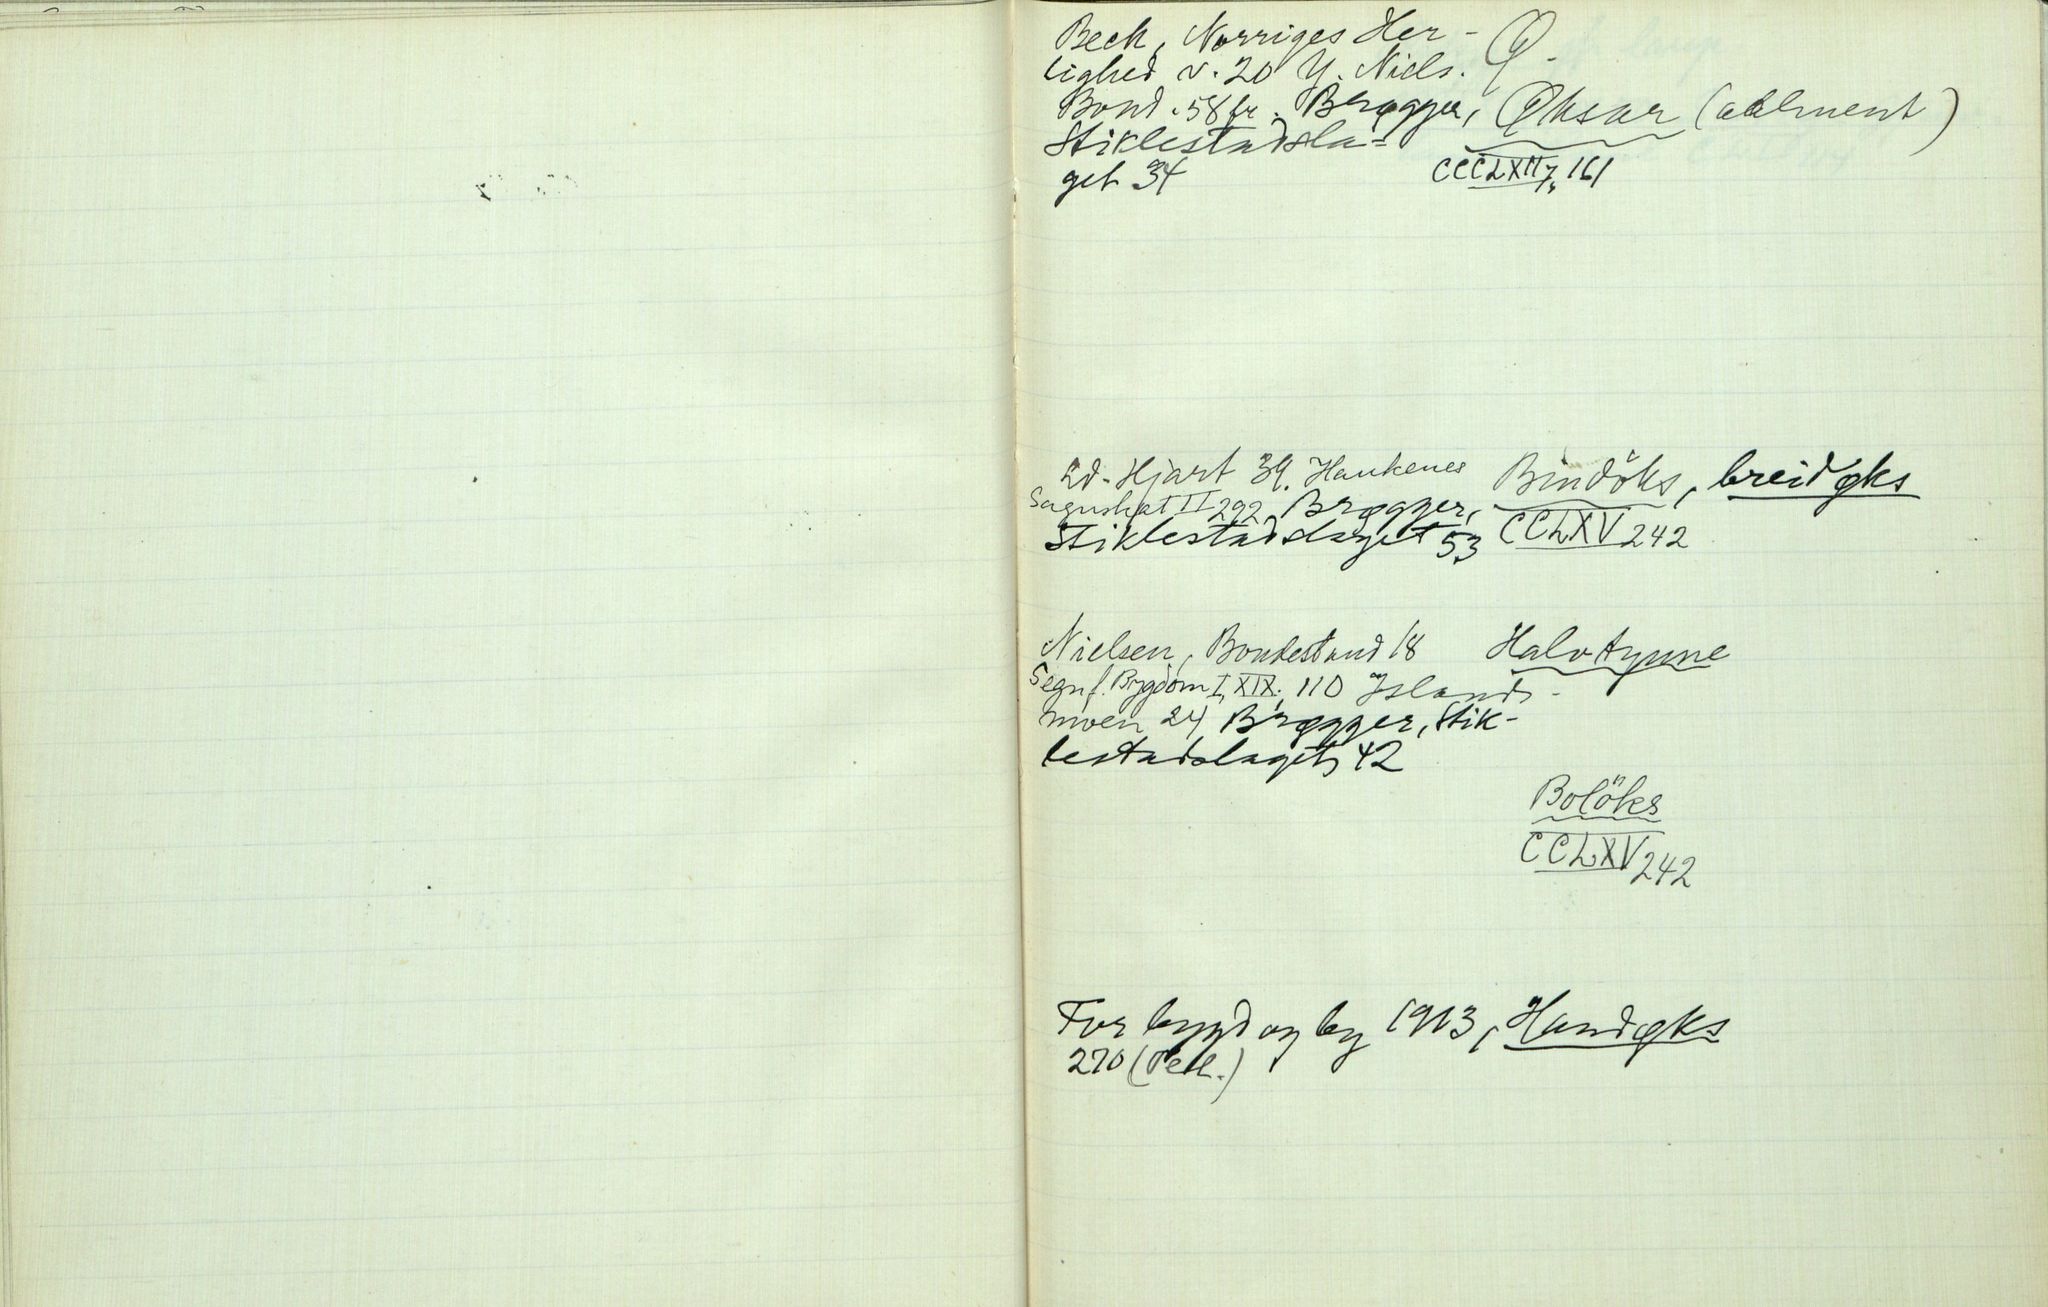 Beck, Norriges Her-
lighed v. 20 Y. Niels.
Bond. 58 fr. Brøgger,
Stiklestadsla-
get 34
Ø
Øksar (ålment)
161
Ed. Hjart 39. Haukenes
II 292 Brøgger,
Stiklestadslaget 53
Bindöks, breidøks
CCLXV 242
Nielsen, Bondestand 18
Segn f. Bygdom I, XIX. 110 Islands-
moen 24 Brøgger, Stik-
lestadslaget, 42
Halvtynne
Bolöks
CCLXV 242
For bygd og by 1913, Handøks
270 (Tel.)